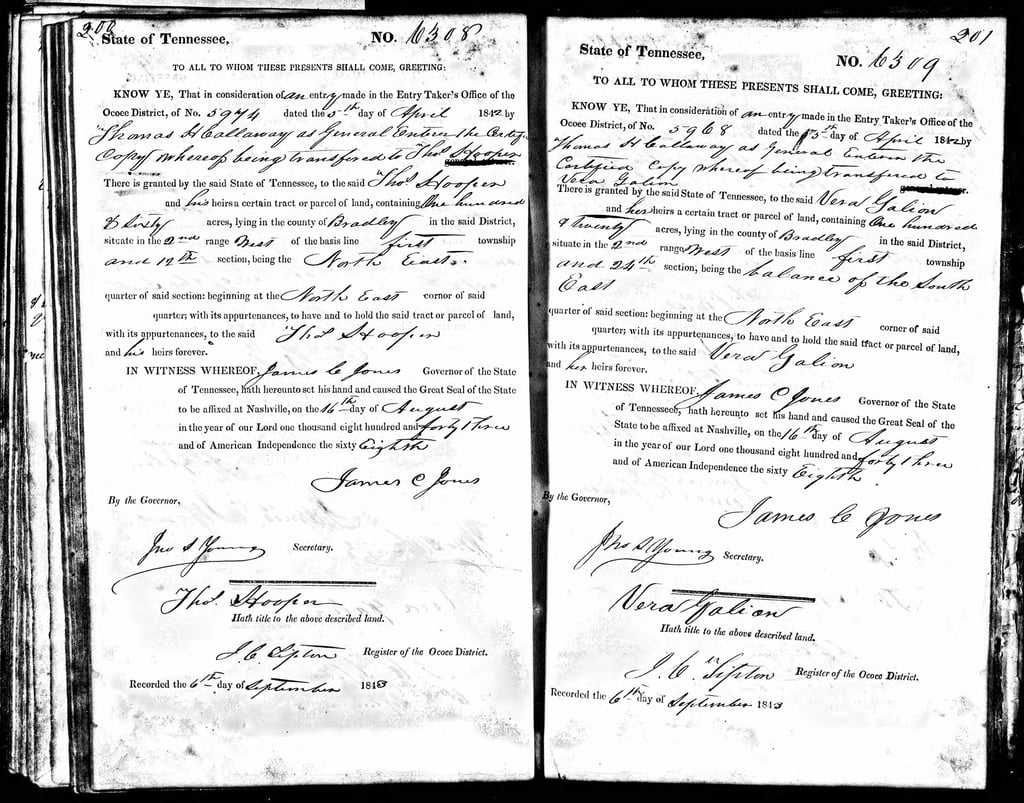 200
State of Tennessee, NO. 6308
TO ALL TO WHOM THESE PRESENTS SHALL COME, GREETING:
KNOW YE, That in consideration of an entry made in the Entry Taker's Office of the
Ocoee District, of No. 5974 dated the 5th day of April 1842 by
Thomas H Callaway as General Enterer the Certif
Copy whereof being transfered to Thos Hooper
There is granted by the said State of Tennessee, to the said Thos Hooper
and his heirs a certain tract or parcel of land, containing One hundred
& Sixty acres, lying in the county of Bradley in the said District,
situate in the 2nd range West of the basis line first township
and 12th section, being the North East
quarter of said section: beginning at the North East corner of said
quarter; with its appurtenances, to have and to hold the said tract or parcel of land,
with its appurtenances, to the said Thos Hooper
and his heirs forever.
IN WITNESS WHEREOF, James C Jones Governor of the State
of Tennessee, hath hereunto set his hand and caused the Great Seal of the State
to be affixed at Nashville, on the 16th day of August
in the year of our Lord one thousand eight hundred and forty three
and of American Independence the sixty Eighth
James C Jones
By the Governor,
Jno S Young Secretary.
Thos. Hooper
Hath title to the above described land.
J. C. Tipton Register of the Ocoee District.
Recorded the 6th day of September 1843
201
State of Tennessee, NO. 6309
TO ALL TO WHOM THESE PRESENTS SHALL COME, GREETING:
KNOW YE, That in consideration of an entry made in the Entry Taker's Office of the
Ocoee District, of No. 5968 dated the 5th day of April 1842 by
Thomas H Callaway as General Enterer the
Certified Copy whereof being transfered to
Vera Galion
There is granted by the said State of Tennessee, to the said Vera Galion
and her heirs a certain tract or parcel of land, containing One hundred
& Twenty acres, lying in the county of Bradley in the said District,
situate in the 2nd range West of the basis line first township
and 24th section, being the balance of the South
East
quarter of said section: beginning at the North East corner of said
quarter; with its appurtenances, to have and to hold the said tract or parcel of land,
with its appurtenances, to the said Vera Galion
and her heirs forever.
IN WITNESS WHEREOF, James C Jones Governor of the State
of Tennessee, hath hereunto set his hand and caused the Great Seal of the
State to be affixed at Nashville, on the 16th day of August
in the year of our Lord one thousand eight hundred and forty three
and of American Independence the sixty Eighth
By the Governor,
James C Jones
Jno S Young Secretary.
Vera Galion
Hath title to the above described land.
J. C. Tipton Register of the Ocoee District.
Recorded the 6th day of September 1843